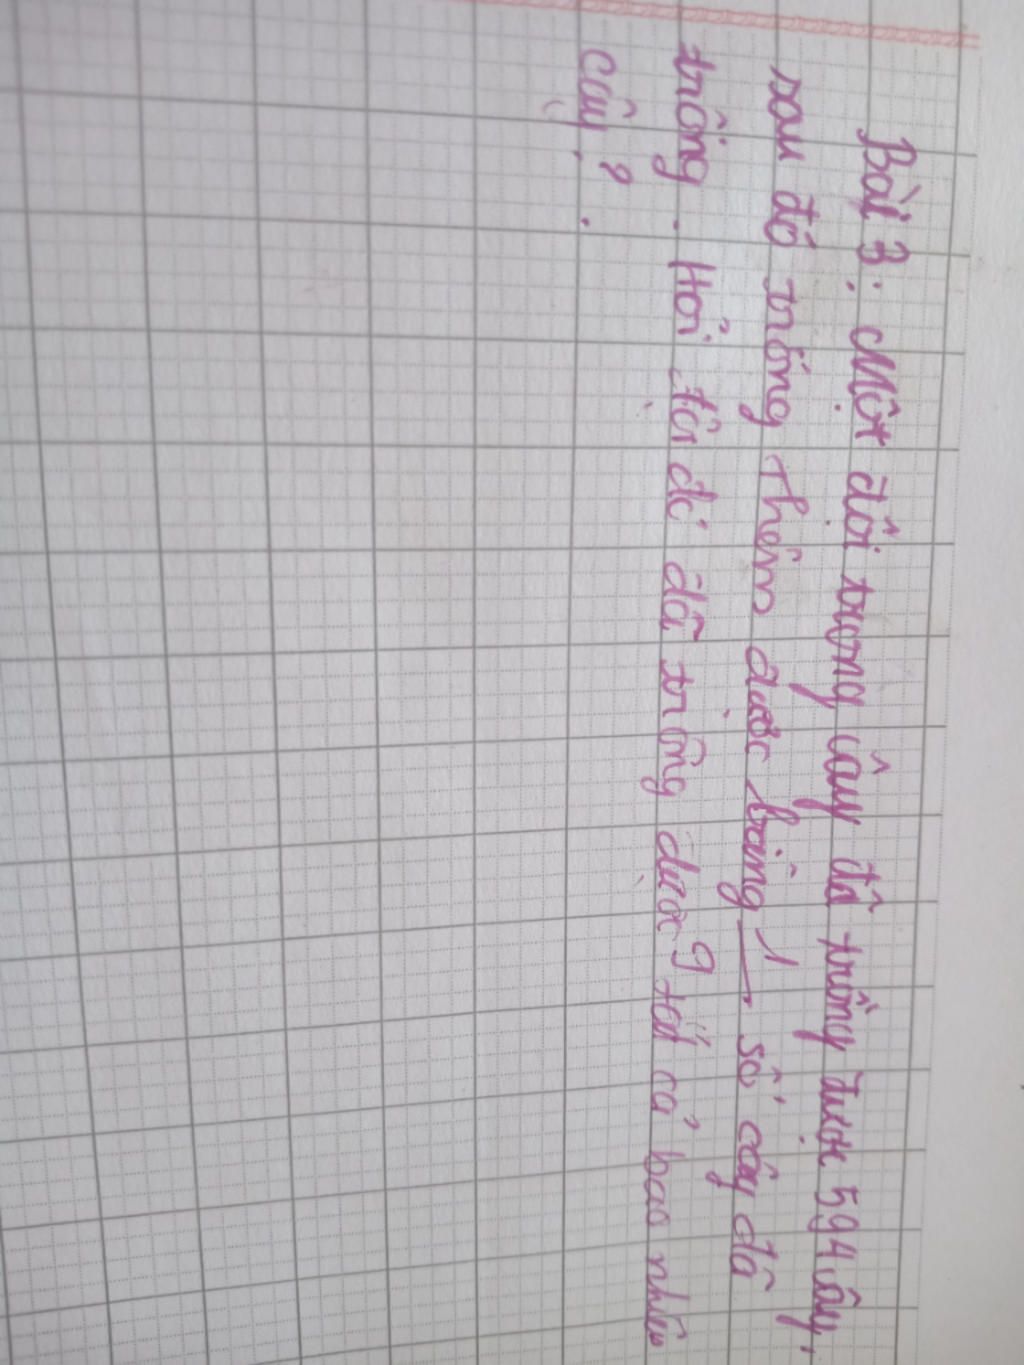 Bài 3: Một đội trồng cây đã trồng được 594 cây,
sau đó trồng thêm được bằng 1/9 số cây đã
trồng. Hỏi đội đó đã trồng được tất cả bao nhiêu
cây?